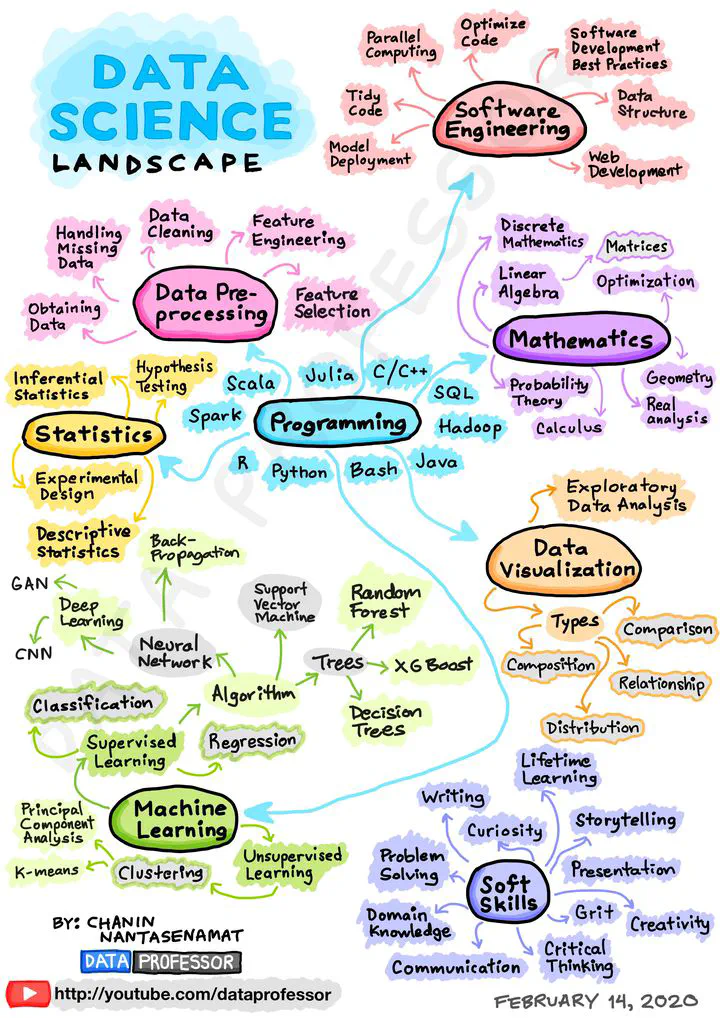 DATA
SCIENCE
LANDSCAPE
Parallel
Computing
Optimize
Code
Software
Development
Best Practices
Tidy
Code
Software
Engineering
Data
Structure
Model
Deployment
Web
Development
Handling
Missing
Data
Data
Cleaning
Feature
Engineering
Obtaining
Data
Data Pre-
processing
Feature
Selection
Discrete
Mathematics
Matrices
Linear
Algebra
Optimization
Mathematics
Probability
Theory
Calculus
Geometry
Real
analysis
Inferential
Statistics
Hypothesis
Testing
Statistics
Experimental
Design
Descriptive
Statistics
Scala
Julia
C/C++
SQL
Spark
Programming
Hadoop
R
Python
Bash
Java
Exploratory
Data Analysis
Data
Visualization
Types
Comparison
Composition
Relationship
Distribution
Back-
Propagation
GAN
Deep
Learning
CNN
Neural
Network
Support
Vector
Machine
Random
Forest
Trees
XG Boost
Algorithm
Decision
Trees
Classification
Supervised
Learning
Regression
Machine
Learning
Principal
Component
Analysis
K-means
Clustering
Unsupervised
Learning
Lifetime
Learning
Writing
Curiosity
Storytelling
Problem
Solving
Soft
Skills
Presentation
Domain
Knowledge
Grit
Creativity
Communication
Critical
Thinking
BY: CHANIN
NANTASENAMAT
DATA PROFESSOR
http://youtube.com/dataprofessor
FEBRUARY 14, 2020
DATA PROFESSOR